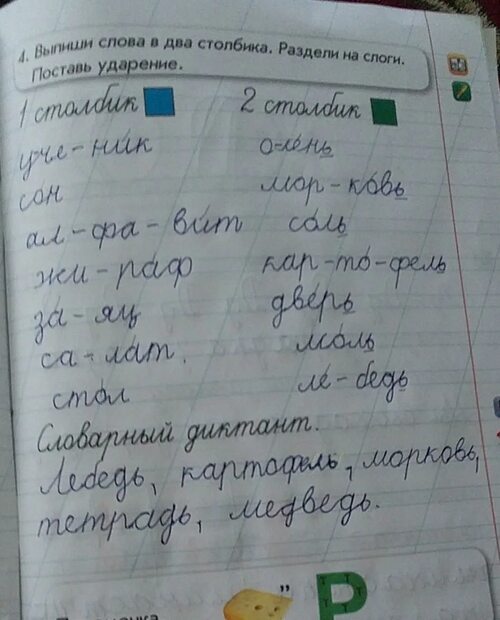 4. Выпиши слова в два столбика. Раздели на слоги.
Поставь ударение.
1 столбик 2 столбик
уче-ни́к о-ле́нь
сон мор-ко́вь
ал-фа-ви́т со́ль
жи-ра́ф кар-то́-фель
за́-яц две́рь
са-ла́т. мо́ль
сто́л ле́-бедь
Словарный диктант.
Лебедь, картофель, морковь,
тетрадь, медведь.
” Р